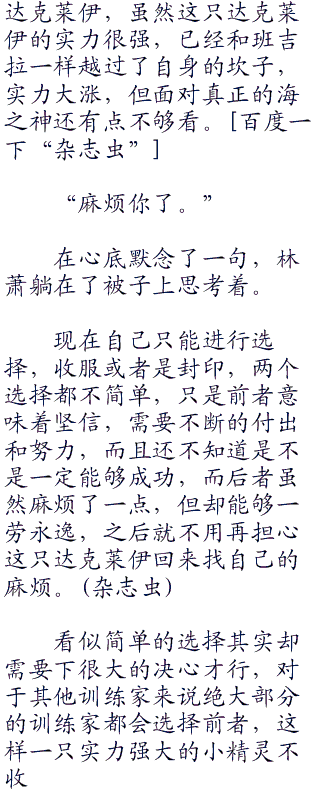 达克莱伊，虽然这只达克莱
伊的实力很强，已经和班吉
拉一样越过了自身的坎子，
实力大涨，但面对真正的海
之神还有点不够看。[百度一
下“杂志虫”]
“麻烦你了。”
在心底默念了一句，林
萧躺在了被子上思考着。
现在自己只能进行选
择，收服或者是封印，两个
选择都不简单，只是前者意
味着坚信，需要不断的付出
和努力，而且还不知道是不
是一定能够成功，而后者虽
然麻烦了一点，但却能够一
劳永逸，之后就不用再担心
这只达克莱伊回来找自己的
麻烦。(杂志虫)
看似简单的选择其实却
需要下很大的决心才行，对
于其他训练家来说绝大部分
的训练家都会选择前者，这
样一只实力强大的小精灵不
收